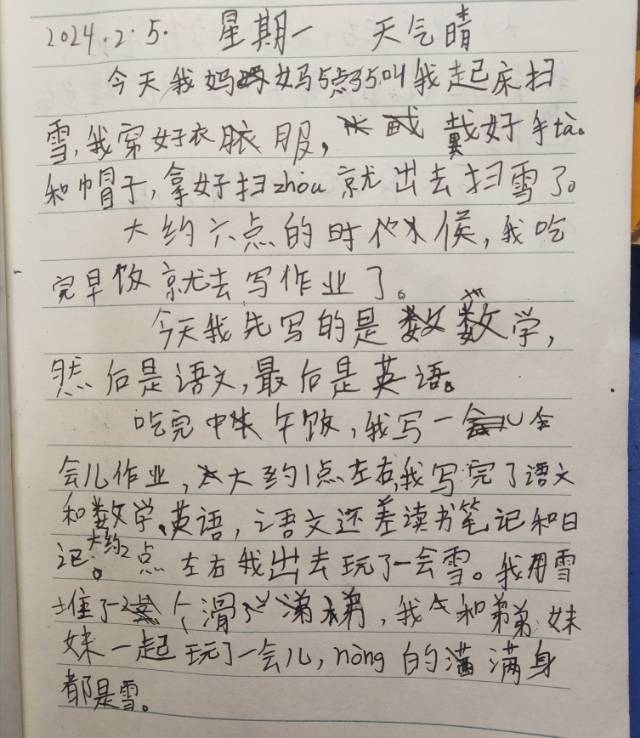 2024.2.5. 星期一 天气晴
今天我妈妈5点35叫我起床扫
雪,我穿好衣服,戴好手tào
和帽子,拿好扫zhou就出去扫雪了。
大约六点的时候,我吃
完早饭就去写作业了。
今天我先写的是数学,
然后是语文,最后是英语。
吃完中午饭,我写一
会儿作业,大约1点左右,我写完了语文
和数学,英语,语文还差读书笔记和日
记。大约2点左右我出去玩了一会雪。我用雪
堆了一个滑梯,我和弟弟妹
妹一起玩了一会儿,nòng的满身
都是雪。